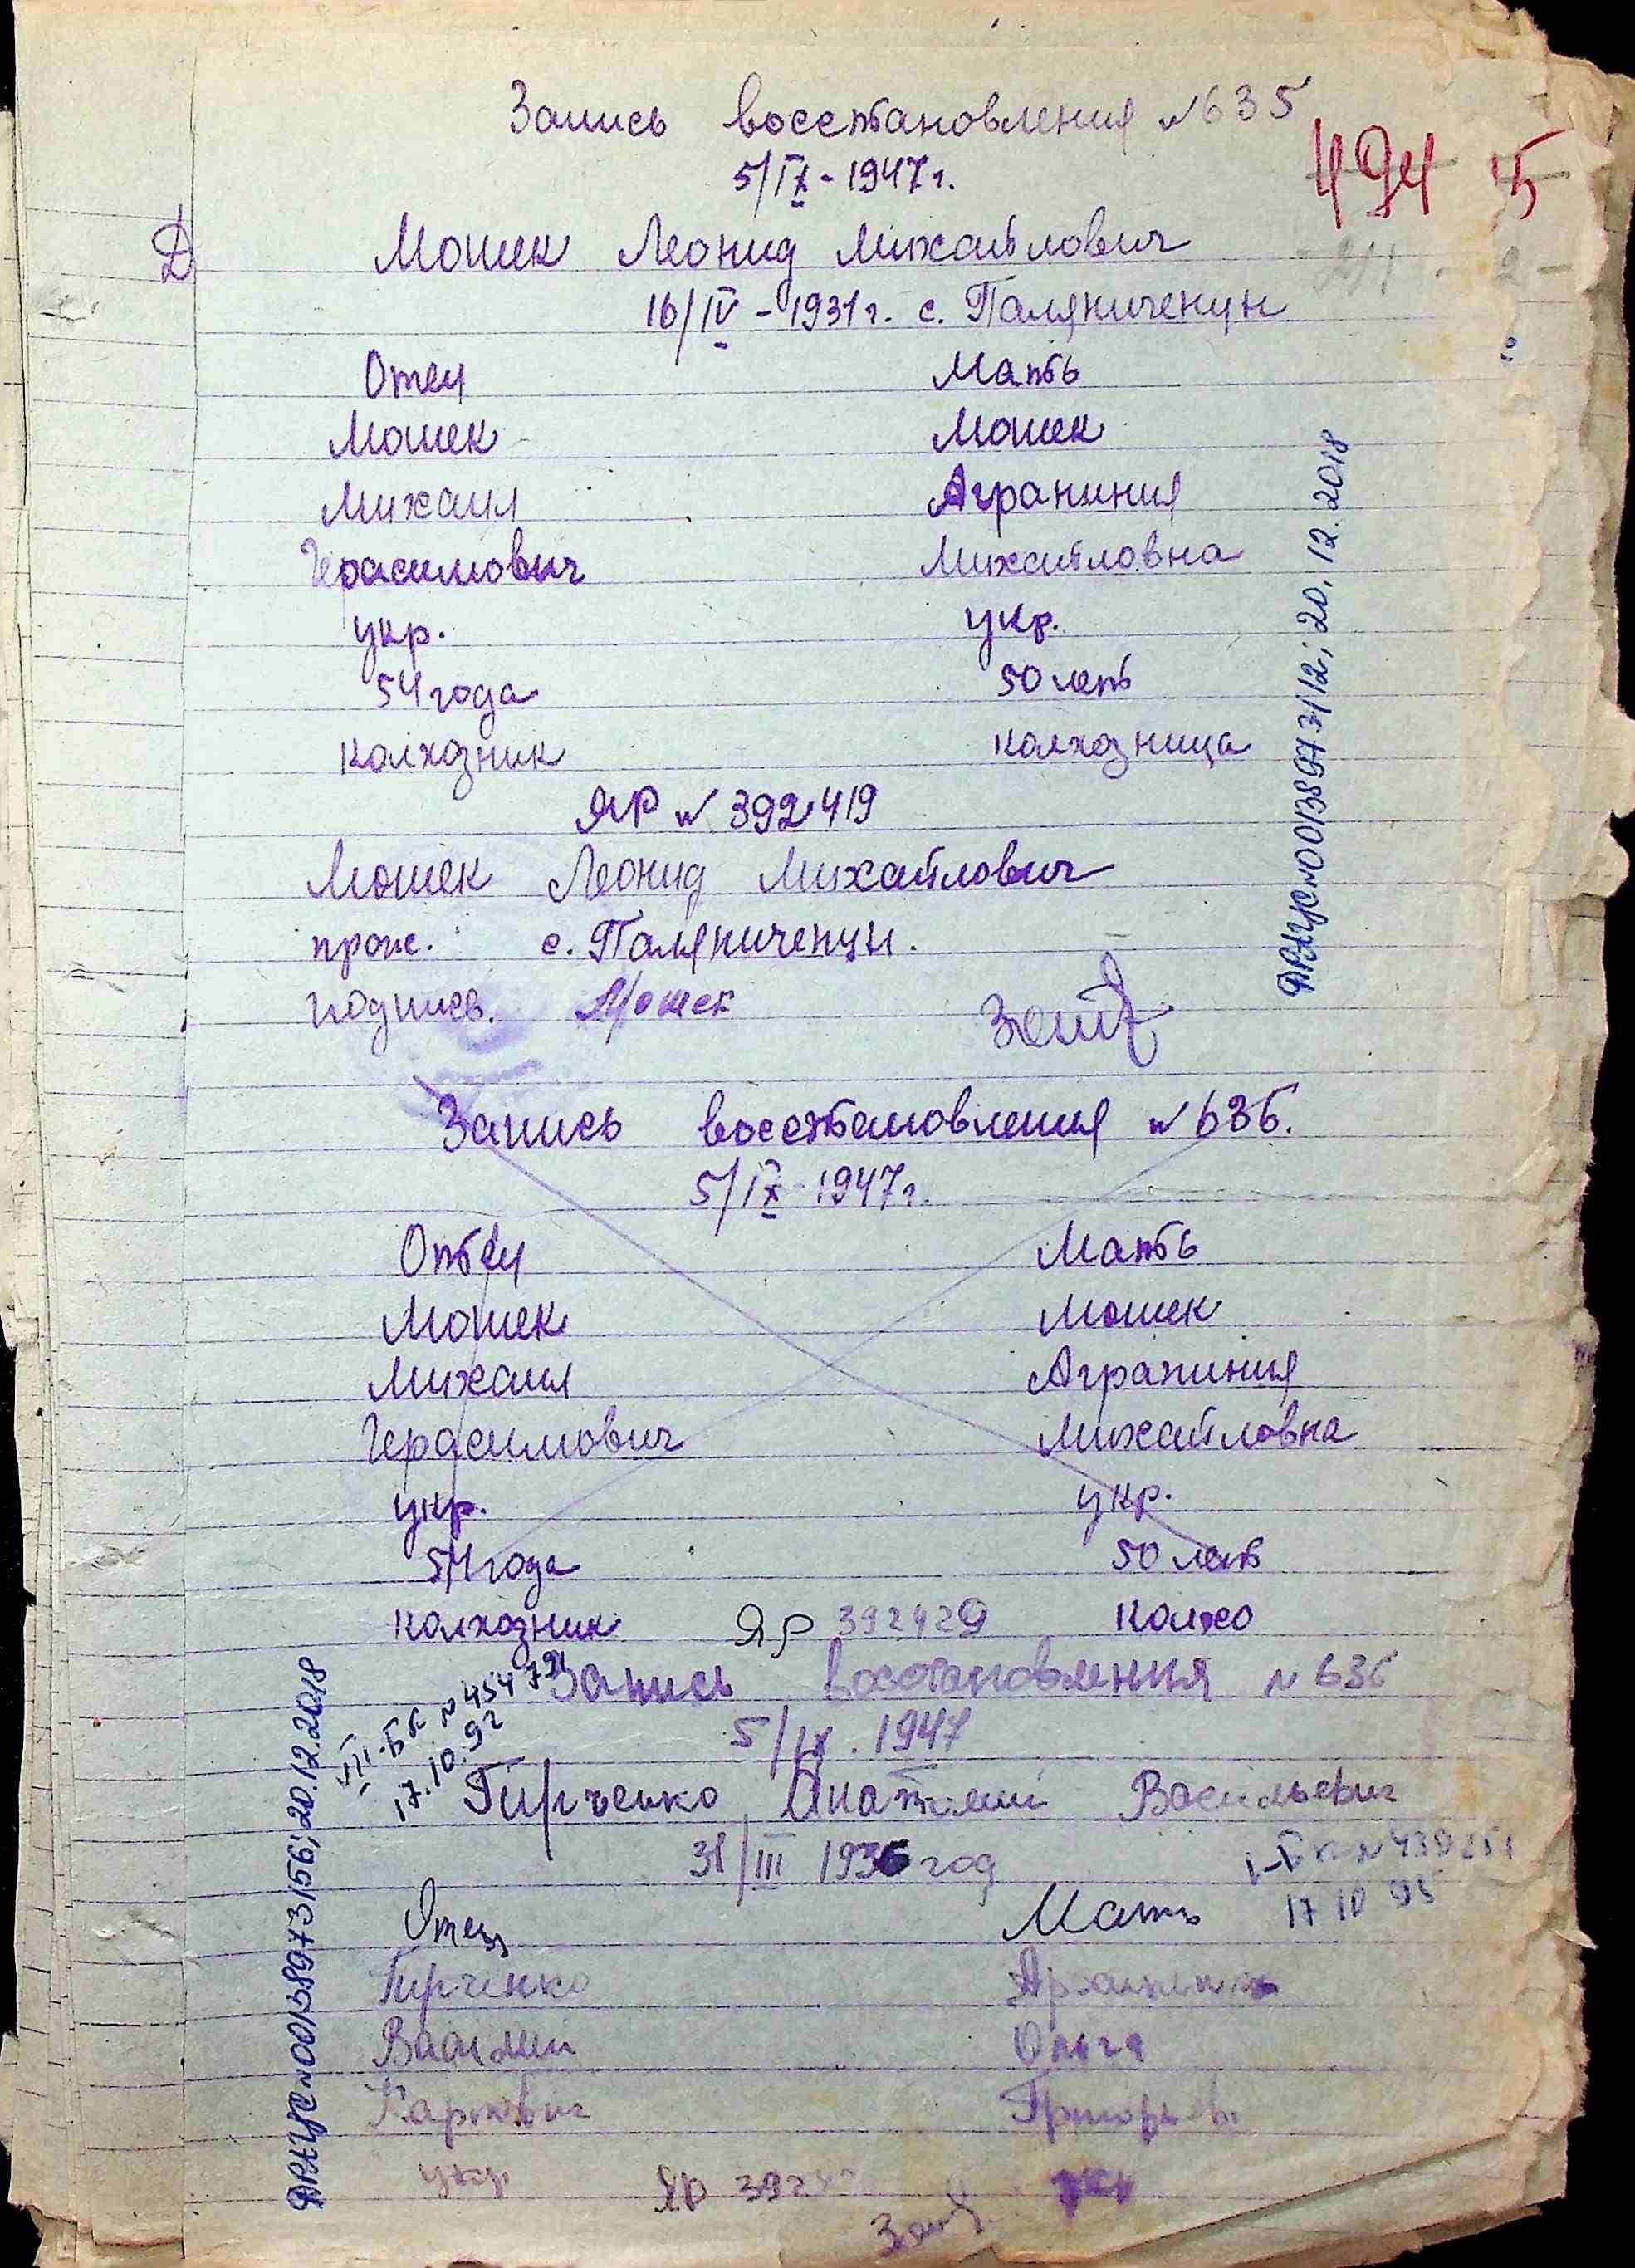 Запись восстановления №635
5/IX - 1947 г.
494 5
Д
Мошек Леонид Михайлович
16/IV - 1931 г. с. Паляниченцы
Отец Мать
Мошек Мошек
Михаил Аграпиния
Герасимович Михайловна
укр. укр.
54 года 50 лет
колхозник колхозница
ЯР № 392419
Мошек Леонид Михайлович
прож. с. Паляниченцы.
подпись. Мошек
ДРАЦС №00138973112; 20.12.2018
Запись восстановления №636.
5/IX - 1947 г.
Отец Мать
Мошек Мошек
Михаил Аграпиния
Герасимович Михайловна
укр. укр.
54 года 50 лет
колхозник ЯР 392429 колхо
Запись восстановления №636
5/IX. 1947
III-БК №454791
17.10.92
Гирченко Анатолий Васильевич
31/III 1936 год
I-БК №
17 10 95
Отец Мать
Гирченко
Василий Ольга
Карпович
укр ЯР укр
ДРАЦС №00138973156; 20.12.2018